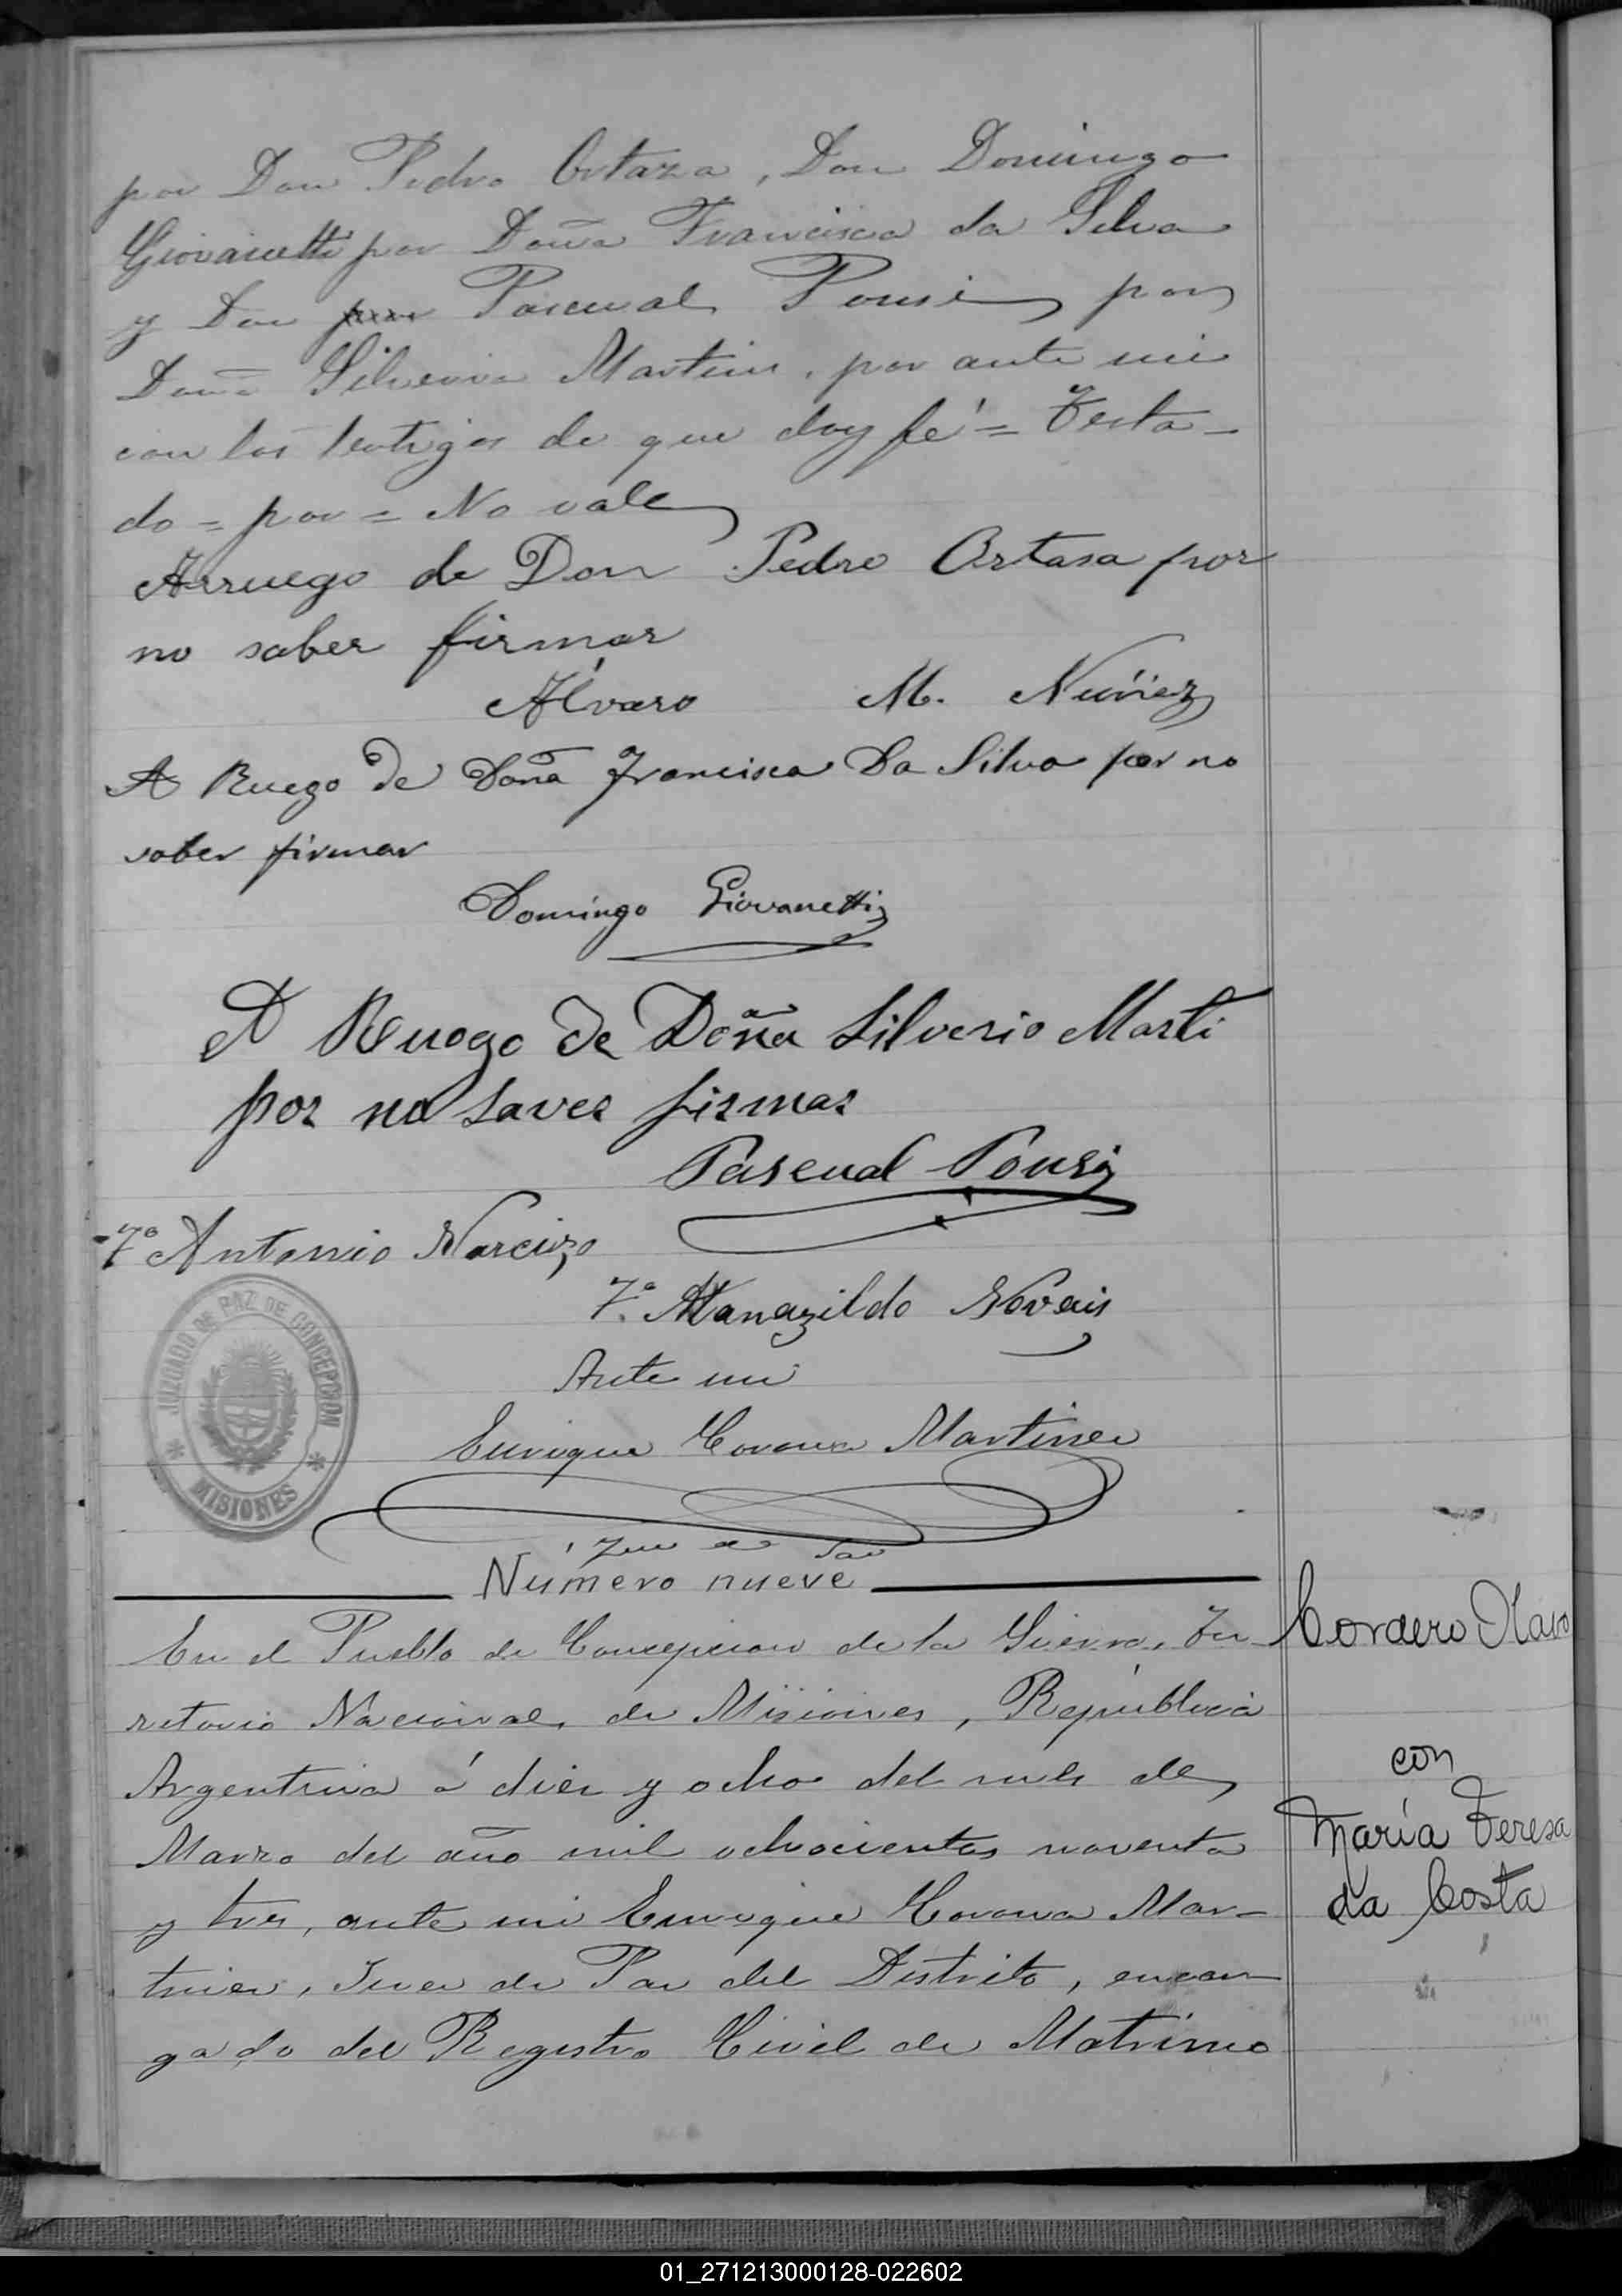 por Don Pedro Ortaza, Don Domingo
Giovanetti por Doña Francisca da Silva
y Don por Pascual Pousi por
Doña Silveria Martins, por ante mi
con los testigos de que doy fé = Testa-
do = por = No vale
Arruego de Don Pedro Ortasa por
no saber firmar
Álvaro M. Nuñez
A Ruego de Doña Francisca Da Silva por no
saber firmar
Domingo Giovanetti
A Ruego de Doña Silverio Marti
por no saver firmar
Pascual Pousi
Tº Antonio Narcizo
Tº. Atanazildo Novais
JUZGADO DE PAZ DE CONCEPCION
* MISIONES *
Ante mi
Enrique Corona Martinez
Juez de Paz
Número nueve
En el Pueblo de Concepcion de la Sierra, Ter-
ritorio Nacional de Misiones, República
Argentina á diez y ocho del mes de
Marzo del año mil ochocientos noventa
y tres, ante mi Enrique Corona Mar-
tinez, Juez de Paz del Distrito, encar-
gado del Registro Civil de Matrimo
Cordero Olavo
con
María Teresa
da Costa
01_271213000128-022602